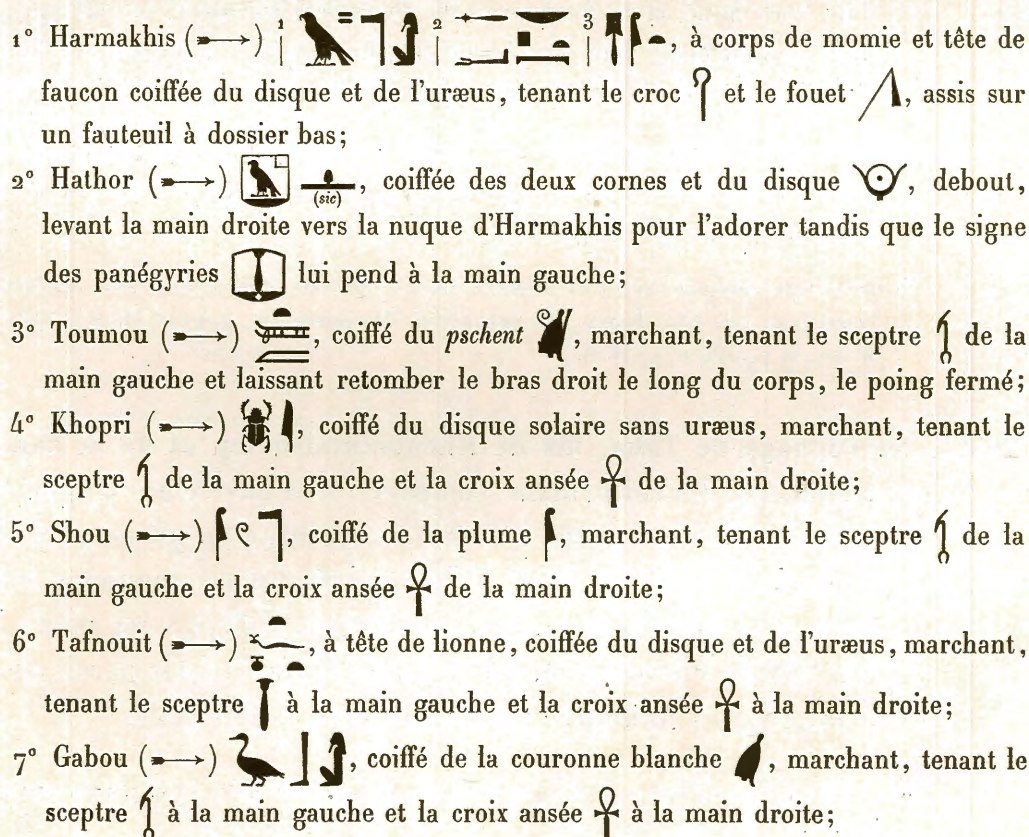 1° Harmakhis (➵) 1 2 3, à corps de momie et tête de
faucon coiffée du disque et de l'uræus, tenant le croc et le fouet, assis sur
un fauteuil à dossier bas;
2° Hathor (➵) (sic), coiffée des deux cornes et du disque, debout,
levant la main droite vers la nuque d'Harmakhis pour l'adorer tandis que le signe
des panégyries lui pend à la main gauche;
3° Toumou (➵), coiffé du pschent, marchant, tenant le sceptre de la
main gauche et laissant retomber le bras droit le long du corps, le poing fermé;
4° Khopri (➵) 𓆣𓇋, coiffé du disque solaire sans uræus, marchant, tenant le
sceptre de la main gauche et la croix ansée 𓋹 de la main droite;
5° Shou (➵) 𓆄𓏲𓊹, coiffé de la plume 𓆄, marchant, tenant le sceptre de la
main gauche et la croix ansée 𓋹 de la main droite;
6° Tafnouit (➵), à tête de lionne, coiffée du disque et de l'uræus, marchant,
tenant le sceptre à la main gauche et la croix ansée 𓋹 à la main droite;
7° Gabou (➵) 𓅬𓃀𓀭, coiffé de la couronne blanche, marchant, tenant le
sceptre à la main gauche et la croix ansée 𓋹 à la main droite;